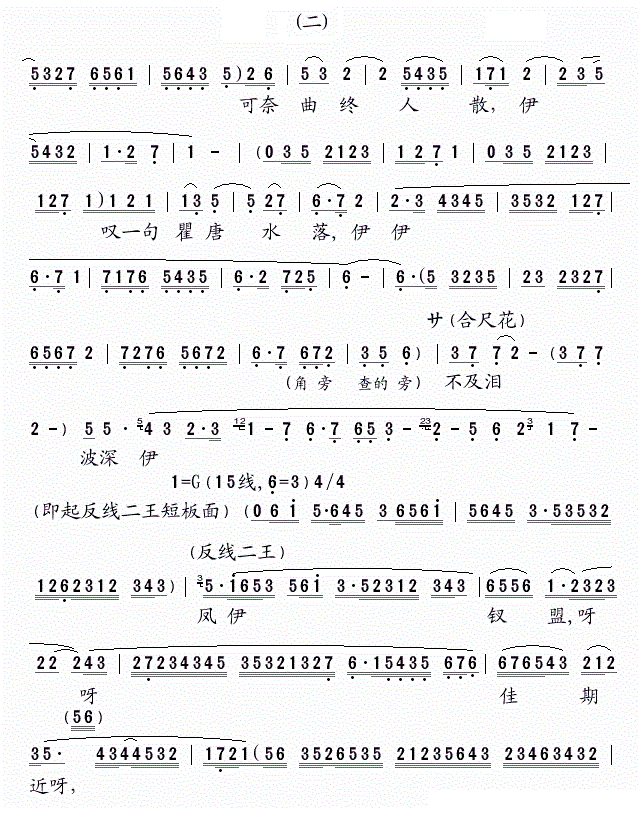 (二)
5327 6561 | 5643 5)26 | 53 2 | 2 5435 | 171 2 | 235
可奈 曲 终 人 散, 伊
5432 | 1·2 7 | 1 - | (035 2123 | 127 1 | 035 2123 |
127 1)121 | 13 5 | 5 27 | 6·7 2 | 2·3 4345 | 3532 127 |
叹一句 瞿 唐 水 落, 伊 伊
6·7 1 | 7176 5435 | 6·2 725 | 6 - | 6·(5 3235 | 23 2327 |
サ(合尺花)
6567 2 | 7276 5672 | 6·7 672 | 35 6) | 37 72 - (377
(角旁 查的旁) 不及泪
2 -) 5 5· 5 4 3 2·3 12 1 - 7 6·7 65 3 - 23 2 - 5 6 2 3 1 7 -
波深 伊
1=G(15线,6=3)4/4
(即起反线二王短板面)(061 5·645 36561 | 5645 3·53532
(反线二王)
1262312 343) | 3 5·1653 561 3·52312 343 | 6556 1·2323
凤 伊 钗 盟,呀
22 243 | 27234345 35321327 6·15435 676 | 676543 212
呀 佳 期
(56)
35· 4344532 | 1721(56 3526535 21235643 23463432 |
近呀,